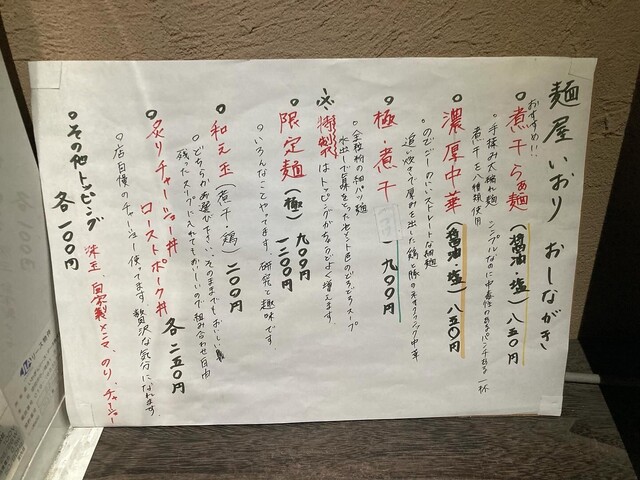 麺屋いおり おしながき
おすすめ!!
○煮干らぁ麺(醤油・塩)八五〇円
・手揉み太縮れ麺 シンプルなのに中毒性のあるパンチある一杯
煮干を八種類使用
○濃厚中華(醤油・塩)八五〇円
・のどごしのいいストレートな細麺
追い炊きで厚みを出した鶏と豚のネオクラシック中華
○極煮干 九〇〇円
・全粒粉の細パツ麺
水出しで旨味をとったセメント色のどろどろスープ
※特製はトッピングがちょうどよく増えます。
○限定麺(極)九〇〇円 一二〇〇円
・いろんなことやってます。研究と趣味です。
○和え玉(煮干・鶏)二〇〇円
・どちらかお選び下さい、そのままでもおいしい
残ったスープに入れてもおいしいので組み合わせ自由
○炙りチャーシュー丼
ローストポーク丼 各二五〇円
○店自慢のチャーシュー使ってます。贅沢な気分になれます。
○その他トッピング
各一〇〇円
味玉、自家製メンマ、のり、チャーシュー